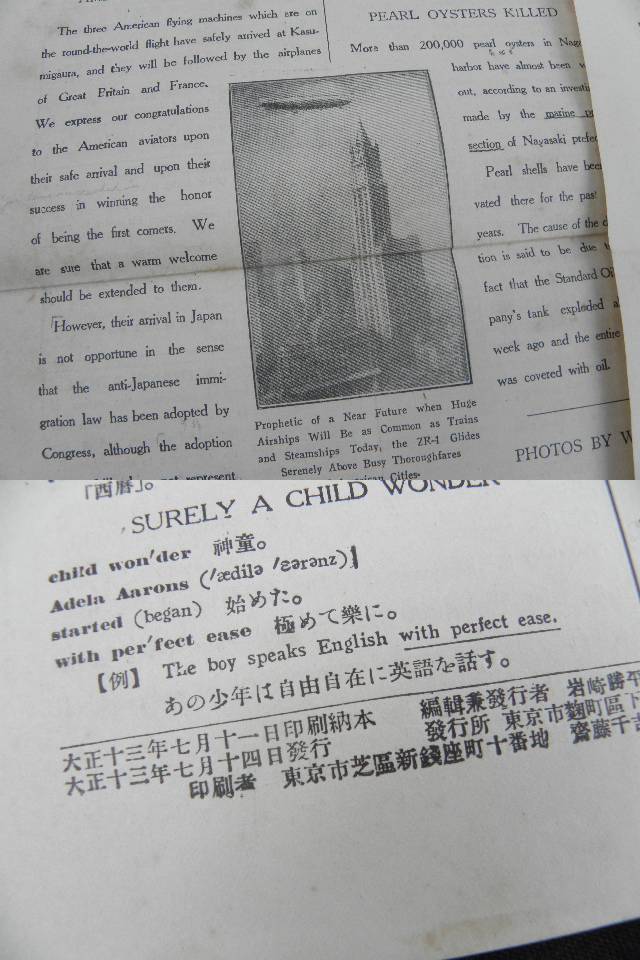 The three American flying machines which are on
the round-the-world flight have safely arrived at Kasu-
migaura, and they will be followed by the airplanes
of Great Britain and France.
We express our congratulations
to the American aviators upon
their safe arrival and upon their
success in winning the honor
of being the first comers. We
are sure that a warm welcome
should be extended to them.
However, their arrival in Japan
is not opportune in the sense
that the anti-Japanese immi-
gration law has been adopted by
Congress, although the adoption
represent
Prophetic of a Near Future when Huge
Airships Will Be as Common as Trains
and Steamships Today, the ZR-1 Glides
Serenely Above Busy Thoroughfares
Cities.
PEARL OYSTERS KILLED
More than 200,000 pearl oysters in
harbor have almost been
out, according to an
made by the marine
section of Nagasaki
Pearl shells have
vated there for the past
years. The cause of the
tion is said to be due
fact that the Standard
pany's tank exploded
week ago and the entire
was covered with oil.
PHOTOS BY
「西暦」。
SURELY A CHILD WONDER
child won'der 神童。
Adela Aarons ('ædilə 'ɛərənz)
started (began) 始めた。
with per'fect ease 極めて樂に。
【例】 The boy speaks English with perfect ease.
あの少年は自由自在に英語を話す。
大正十三年七月十一日印刷納本 編輯兼發行者 岩崎勝平
大正十三年七月十四日發行 發行所 東京市麴町區下
印刷者 東京市芝區新錢座町十番地 齋藤千吉